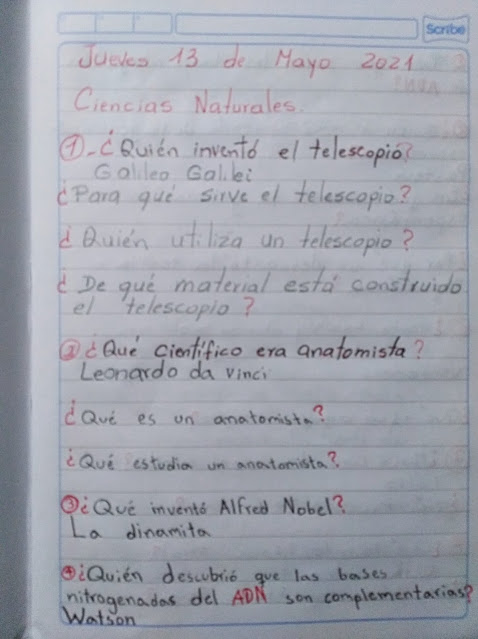 Scribe
Jueves 13 de Mayo 2021
Ciencias Naturales.
①-¿Quién inventó el telescopio?
Galileo Galilei
¿Para qué sirve el telescopio?
¿Quién utiliza un telescopio?
¿De qué material está construido
el telescopio?
②¿Qué científico era anatomista?
Leonardo da Vinci
¿Qué es un anatomista?
¿Qué estudia un anatomista?
③¿Qué inventó Alfred Nobel?
La dinamita
④¿Quién descubrió que las bases
nitrogenadas del ADN son complementarias?
Watson